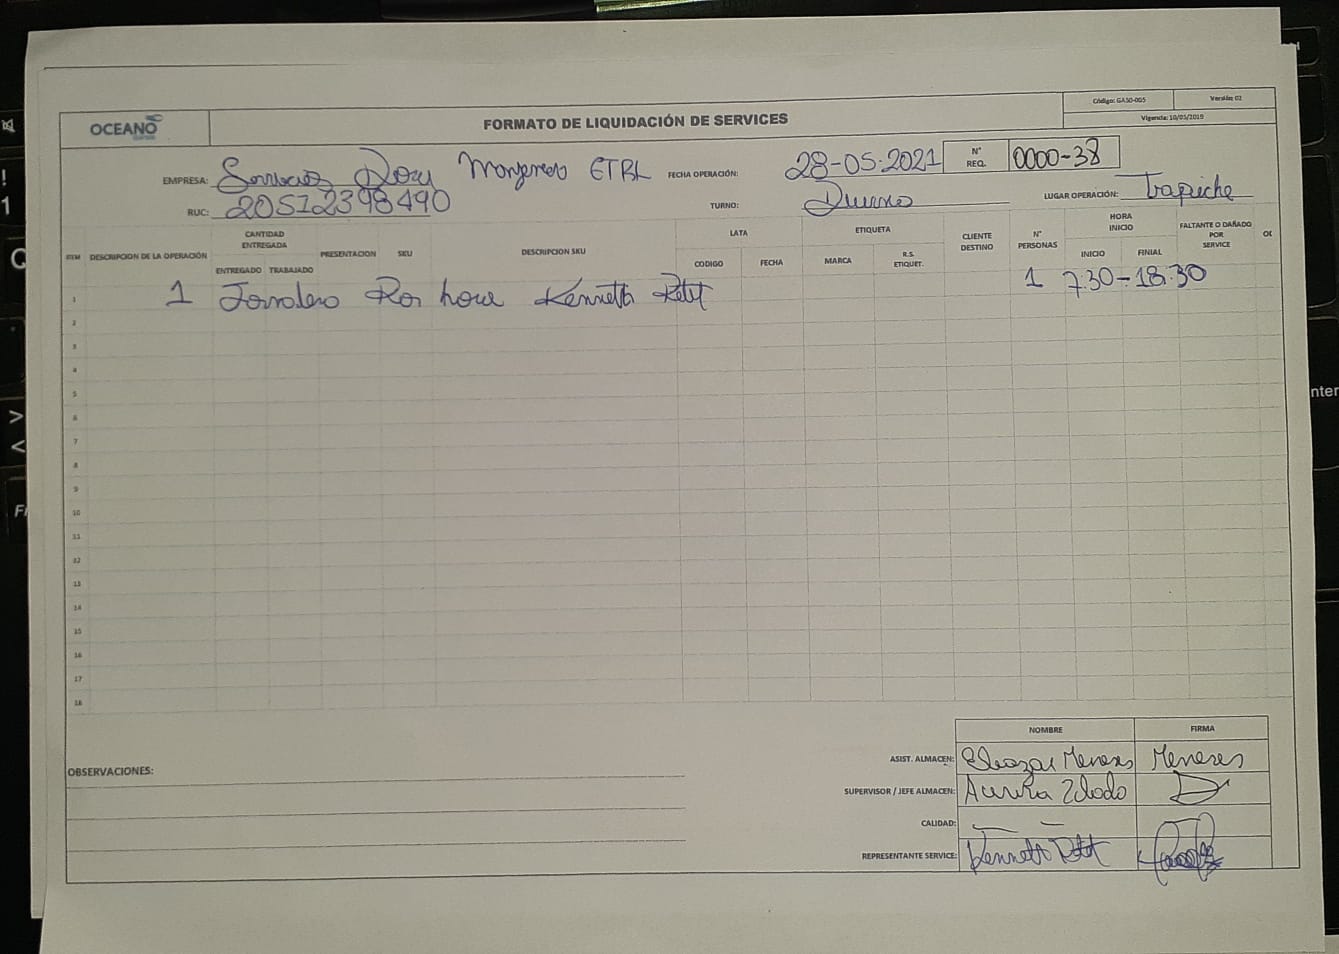 OCEANO
FORMATO DE LIQUIDACIÓN DE SERVICES
Código: GA50-005 Versión: 02
Vigencia: 10/05/2019
EMPRESA: Servicios Rosy Monserrate ETRL FECHA OPERACIÓN: 28-05-2021 N° REQ. 0000-38
RUC: 20512398490 TURNO: Diurno LUGAR OPERACIÓN: Trapiche
ITEM DESCRIPCION DE LA OPERACIÓN CANTIDAD ENTREGADA PRESENTACION SKU DESCRIPCION SKU LATA ETIQUETA CLIENTE DESTINO N° PERSONAS HORA INICIO FALTANTE O DAÑADO POR SERVICE
ENTREGADO TRABAJADO CODIGO FECHA MARCA R.S. ETIQUET. INICIO FINIAL
1 1 Jornalero Por hora Kenneth Petit 1 7:30-18:30
2
3
4
5
6
7
8
9
10
11
12
13
14
15
16
17
18
NOMBRE FIRMA
OBSERVACIONES:
ASIST. ALMACEN: Eleazar Meneses Meneses
SUPERVISOR / JEFE ALMACEN:
CALIDAD:
REPRESENTANTE SERVICE: Kenneth Petit